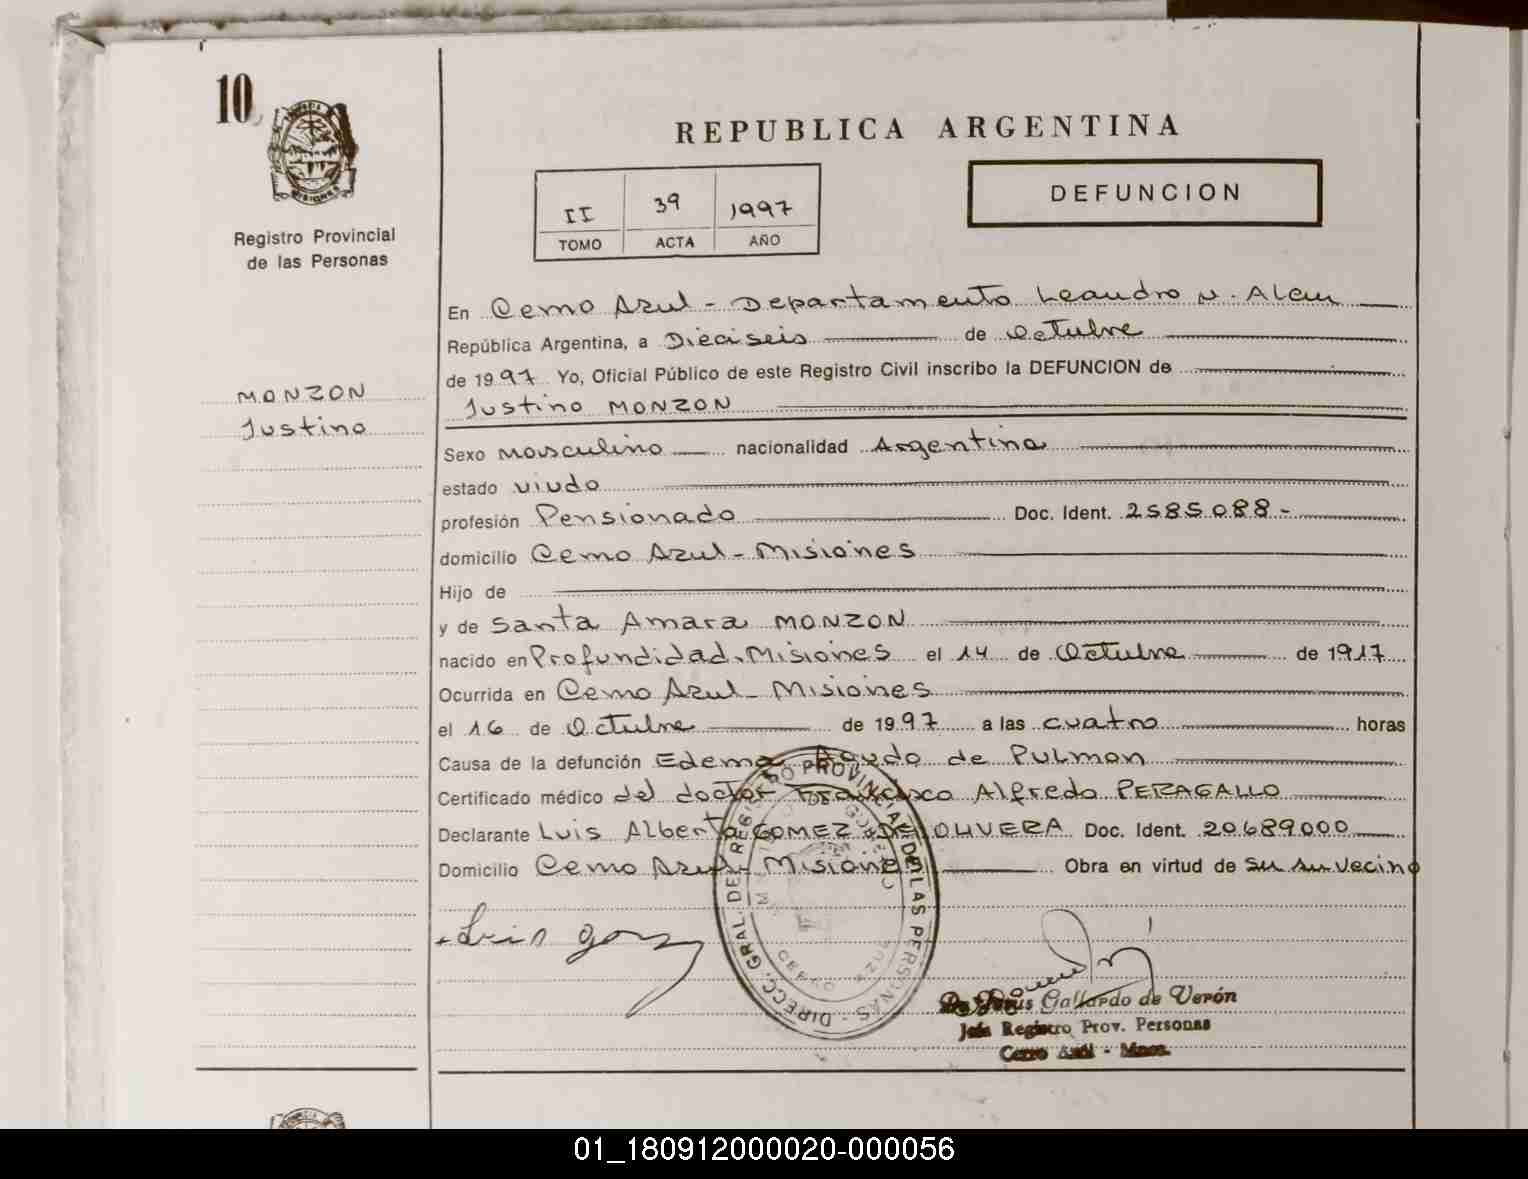 10
MISIONES
Registro Provincial
de las Personas
MONZON
Justino
REPUBLICA ARGENTINA
II 39 1997
TOMO ACTA AÑO
DEFUNCION
En Cerro Azul - Departamento Leandro N. Alem
República Argentina, a Dieciseis de Octubre
de 1997 Yo, Oficial Público de este Registro Civil inscribo la DEFUNCION de
Justino MONZON
Sexo Masculino nacionalidad Argentina
estado viudo
profesión Pensionado Doc. Ident. 2585088-
domicilio Cerro Azul - Misiones
Hijo de
y de Santa Amara MONZON
nacido en Profundidad, Misiones el 14 de Octubre de 1917
Ocurrida en Cerro Azul - Misiones
el 16 de Octubre de 1997 a las cuatro horas
Causa de la defunción Edema Agudo de Pulmon
Certificado médico del doctor Francisco Alfredo PERAGALLO
Declarante Luis Alberto GOMEZ DE OLIVERA Doc. Ident. 20689000
Domicilio Cerro Azul - Misiones Obra en virtud de su su vecino
DIRECC. GRAL. DEL REGISTRO PROVINCIAL DE LAS PERSONAS
CERRO AZUL
Luis
Gallardo de Verón
Jefe Registro Prov. Personas
Cerro Azul - Mnes.
01_180912000020-000056